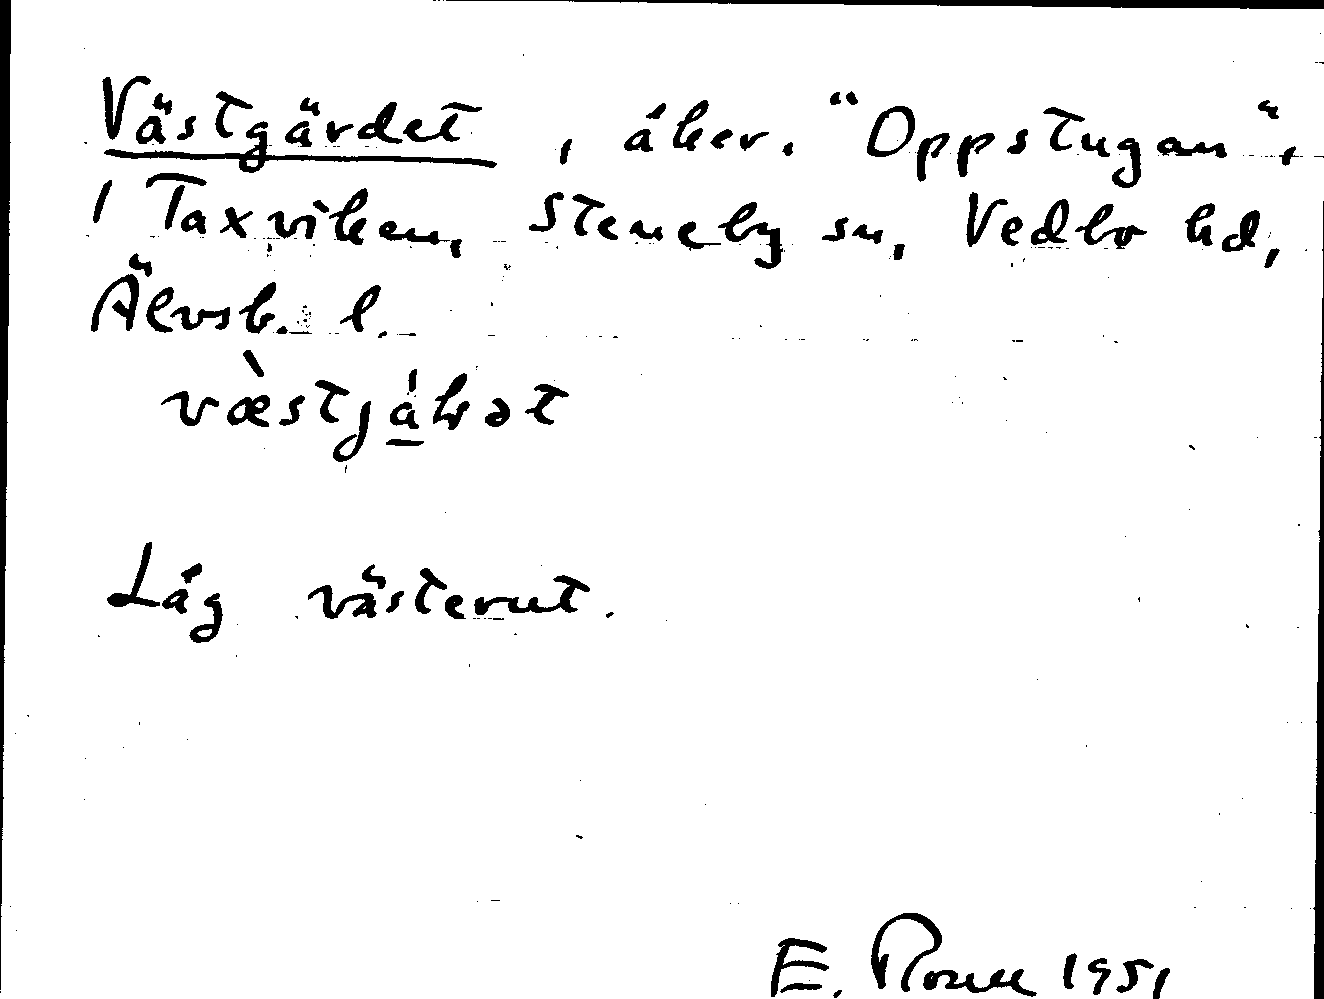 Västgärdet, åker. "Oppstugan",
1 Taxviken, Steneby sn, Vedbo hd,
Älvsb. l.
Låg västerut.
E. 1951